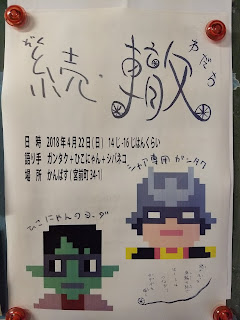 ぞく わだち
続・轍
日 時 2018年4月22日(日) 14じ-16じはんくらい
語り手 ガンタク+ひこにゃん+シバネコ
場 所 かんばす(宮前町34-1)
シャア専用ガンタク
ひこにゃんクヨーダ